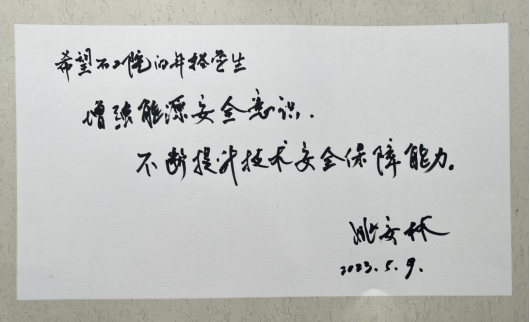 希望石工院的井控学生
增强能源安全意识.
不断提升技术安全保障能力。
姚安林
2023.5.9.